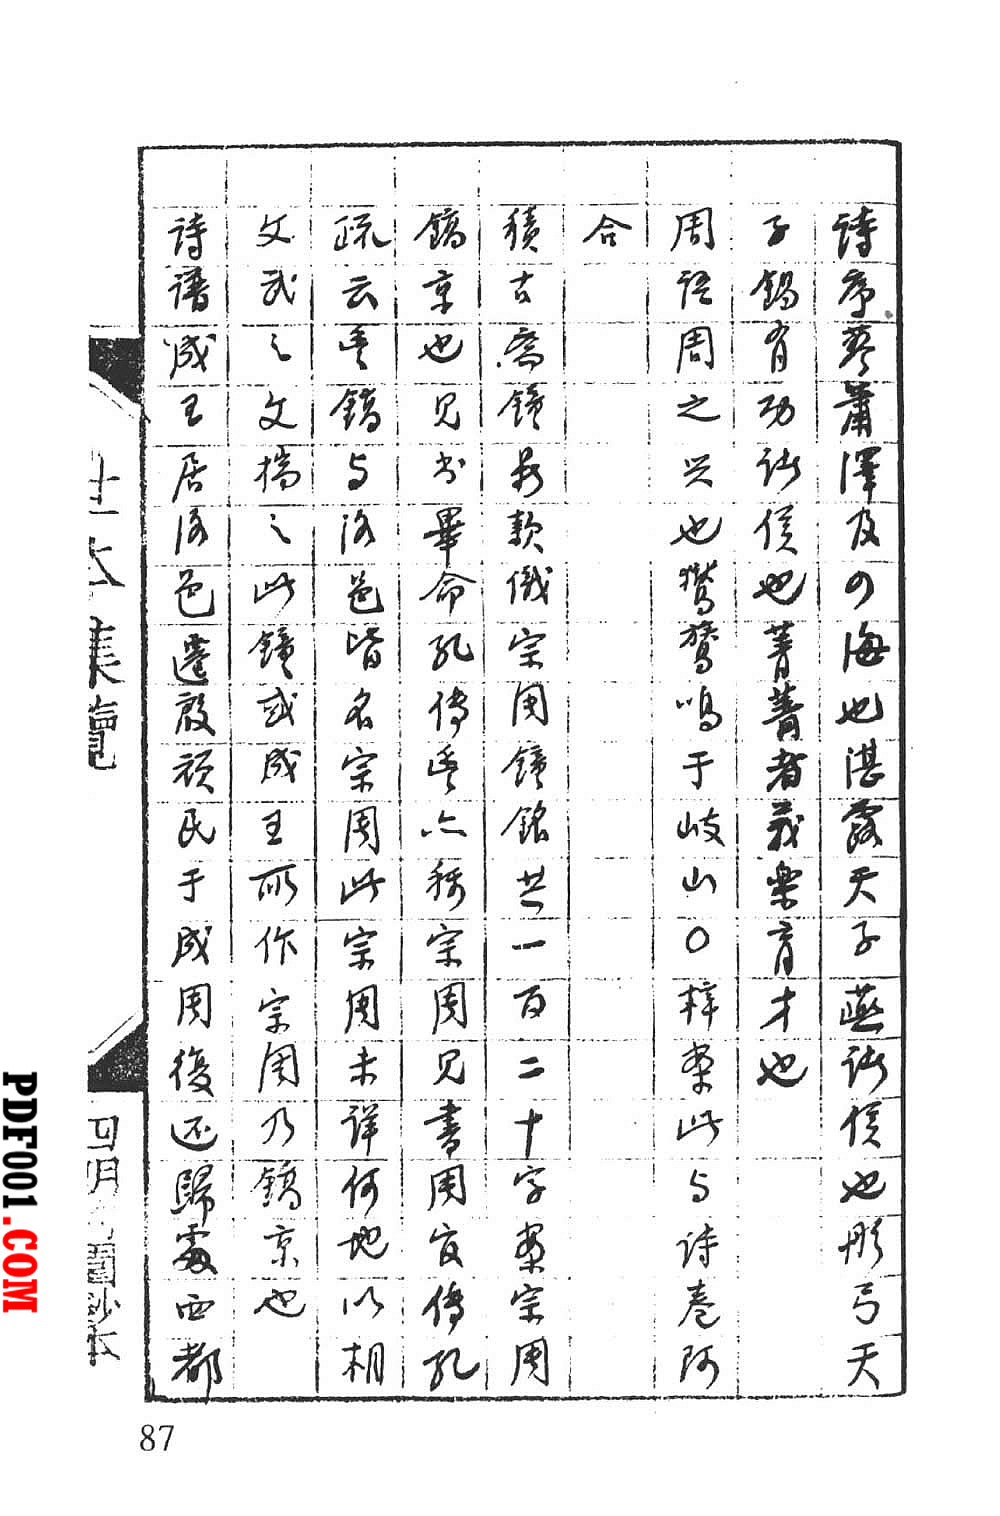 詩序蓼蕭澤及四海也湛露天子燕諸侯也彤弓天
子錫有功諸侯也菁菁者莪樂育才也
周語周之兴也鸑鷟鳴于岐山〇梓案此与詩卷阿
合
積古齋鐘鼎款識宗周鐘銘共一百二十字案宗周
鎬京也見书畢命孔傳豐亦稱宗周見書周官傳孔
疏云豐鎬与洛邑皆名宗周此宗周未詳何地以相
文武之文揣之此鐘或成王所作宗周乃鎬京也
詩譜成王居洛邑遷殷頑民于成周復还歸處西都
世本集覽
四明 園鈔本
87
PDF001.COM